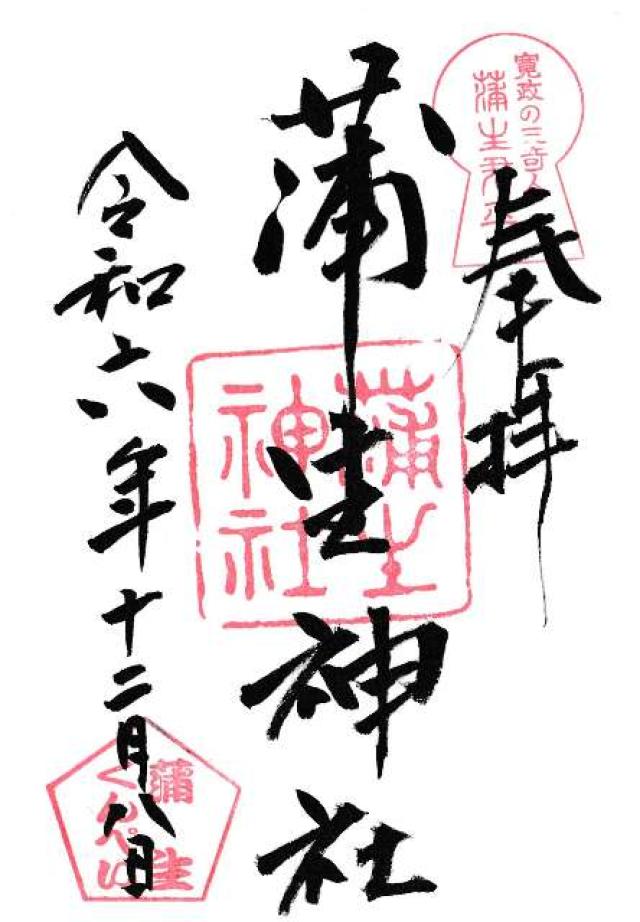 寛政の三奇人
蒲生君平
奉拝
蒲生神社
蒲生
神社
令和六年十二月八日
蒲生
くんぺい